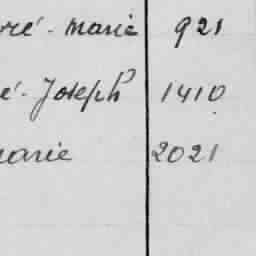 ré - Marie 921
é - Joseph 1410
arie 2021